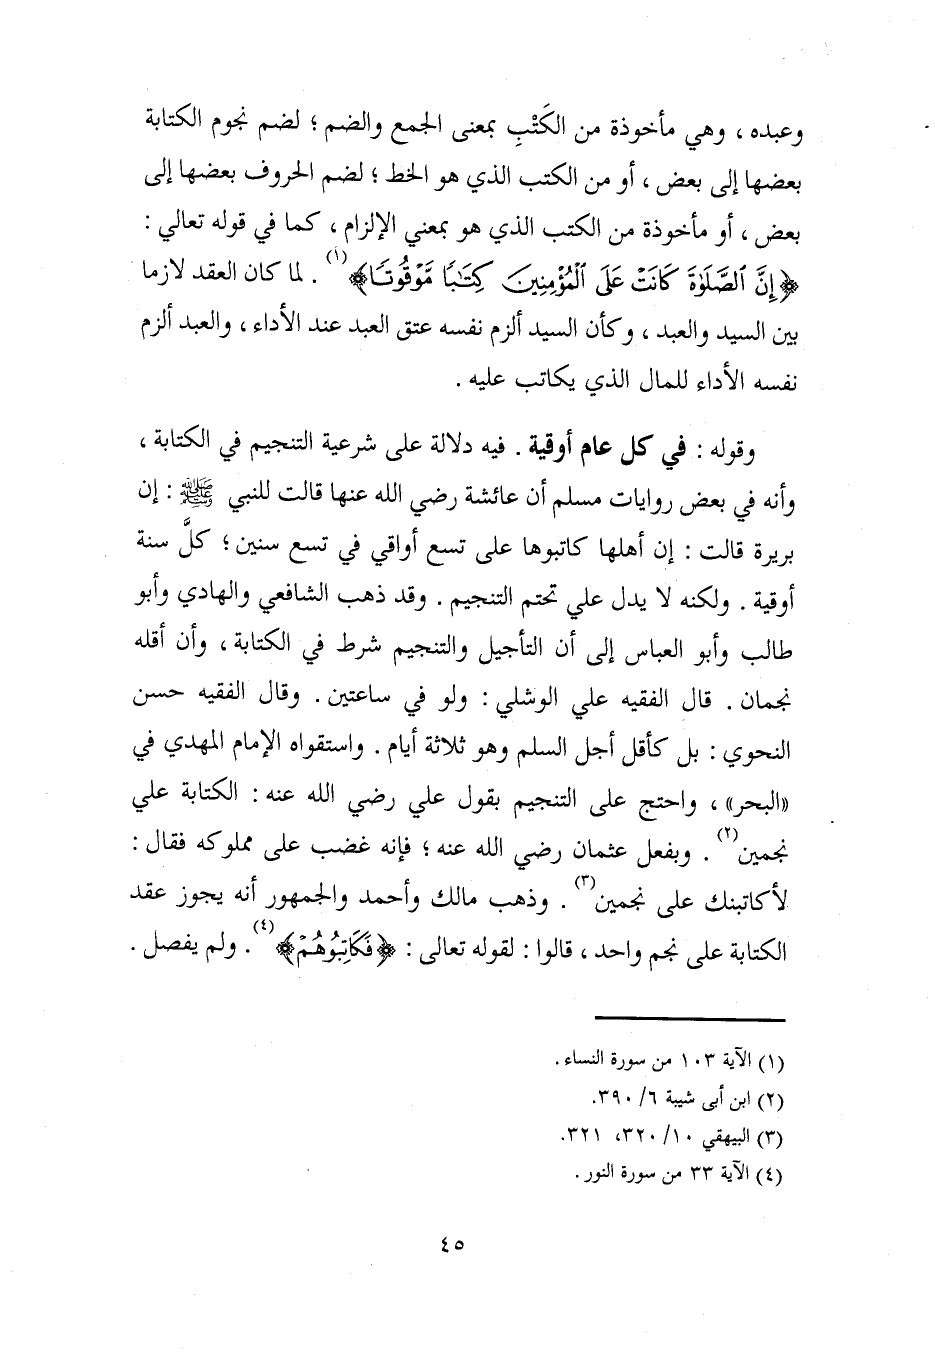 وعبده ، وهي مأخوذة من الكَتْبِ بمعنى الجمع والضم ؛ لضم نجوم الكتابة
بعضها إلى بعض ، أو من الكتب الذي هو الخط ؛ لضم الحروف بعضها إلى
بعض ، أو مأخوذة من الكتب الذي هو بمعني الإلزام ، كما في قوله تعالي :
﴿إِنَّ ٱلصَّلَوٰةَ كَانَتْ عَلَى ٱلْمُؤْمِنِينَ كِتَٰبًا مَّوْقُوتًا﴾(١) . لما كان العقد لازما
بين السيد والعبد ، وكأن السيد ألزم نفسه عتق العبد عند الأداء ، والعبد ألزم
نفسه الأداء للمال الذي يكاتب عليه .
وقوله : في كل عام أوقية . فيه دلالة على شرعية التنجيم في الكتابة ،
وأنه في بعض روايات مسلم أن عائشة رضي الله عنها قالت للنبي ﷺ : إن
بريرة قالت : إن أهلها كاتبوها على تسع أواقي في تسع سنين ؛ كلَّ سنة
أوقية . ولكنه لا يدل علي تحتم التنجيم . وقد ذهب الشافعي والهادي وأبو
طالب وأبو العباس إلى أن التأجيل والتنجيم شرط في الكتابة ، وأن أقله
نجمان . قال الفقيه علي الوشلي : ولو في ساعتين . وقال الفقيه حسن
النحوي : بل كأقل أجل السلم وهو ثلاثة أيام . واستقواه الإمام المهدي في
«البحر» ، واحتج على التنجيم بقول علي رضي الله عنه : الكتابة علي
نجمين(٢) . وبفعل عثمان رضي الله عنه ؛ فإنه غضب على مملوكه فقال :
لأكاتبنك على نجمين(٣) . وذهب مالك وأحمد والجمهور أنه يجوز عقد
الكتابة على نجم واحد ، قالوا : لقوله تعالى : ﴿فَكَاتِبُوهُمْ﴾(٤) . ولم يفصل .
(١) الآية ١٠٣ من سورة النساء .
(٢) ابن أبى شيبة ٦/ ٣٩٠.
(٣) البيهقي ١٠/ ٣٢٠، ٣٢١.
(٤) الآية ٣٣ من سورة النور .
٤٥